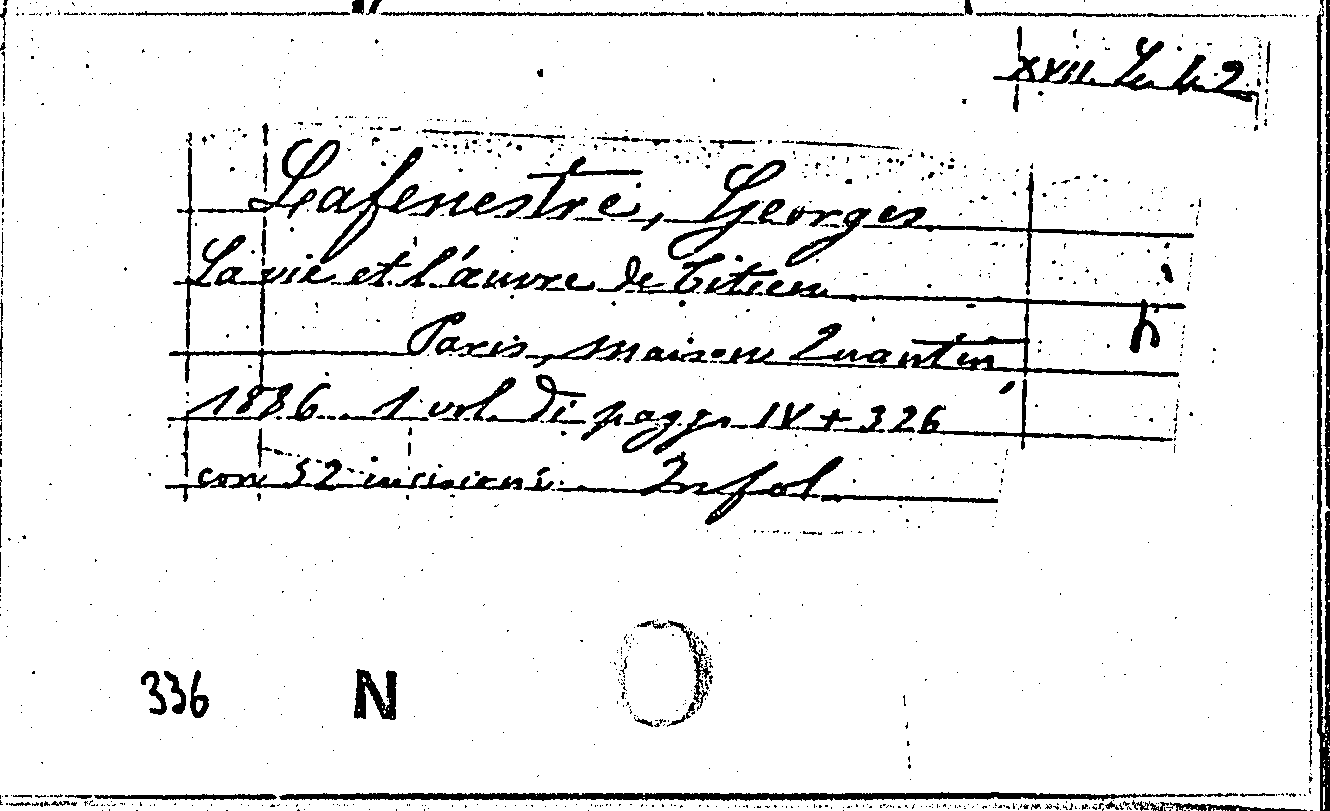 XVII. L. 4. 2
Lafenestre, Georges
La vie et l'œuvre de Titien
Paris, maison Quantin,
1886. 1 vol. di pagg. IV + 326
con 52 incisioni. In fol.
336 N